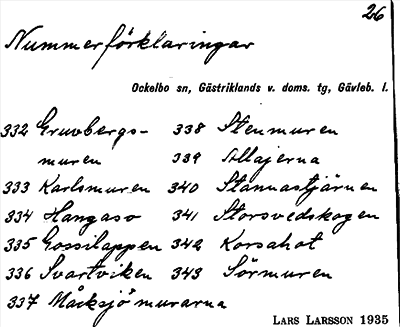 26
Nummerförklaringar
Ockelbo sn, Gästriklands v. doms. tg, Gävleb. l.
332 Gruvbergs-
muren
333 Karlsmuren
334 Hangaso
335 Gossilappen
336 Svartviken
337 Måcksjömurarna
338 Stenmuren
339 Allajerna
340 Stannastjärnen
341 Storsvedskogen
342 Korsahot
343 Sörmuren
LARS LARSSON 1935